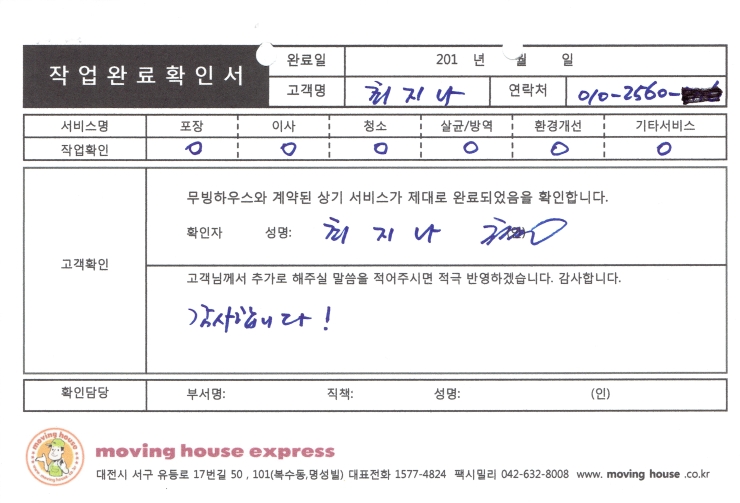 작업완료확인서
완료일 201 년 월 일
고객명 최지나 연락처 010-2560-
서비스명 포장 이사 청소 살균/방역 환경개선 기타서비스
작업확인 O O O O O O
고객확인
무빙하우스와 계약된 상기 서비스가 제대로 완료되었음을 확인합니다.
확인자 성명: 최지나
고객님께서 추가로 해주실 말씀을 적어주시면 적극 반영하겠습니다. 감사합니다.
감사합니다!
확인담당 부서명: 직책: 성명: (인)
moving house
moving house express
대전시 서구 유등로 17번길 50 , 101(복수동,명성빌) 대표전화 1577-4824 팩시밀리 042-632-8008 www. moving house .co.kr